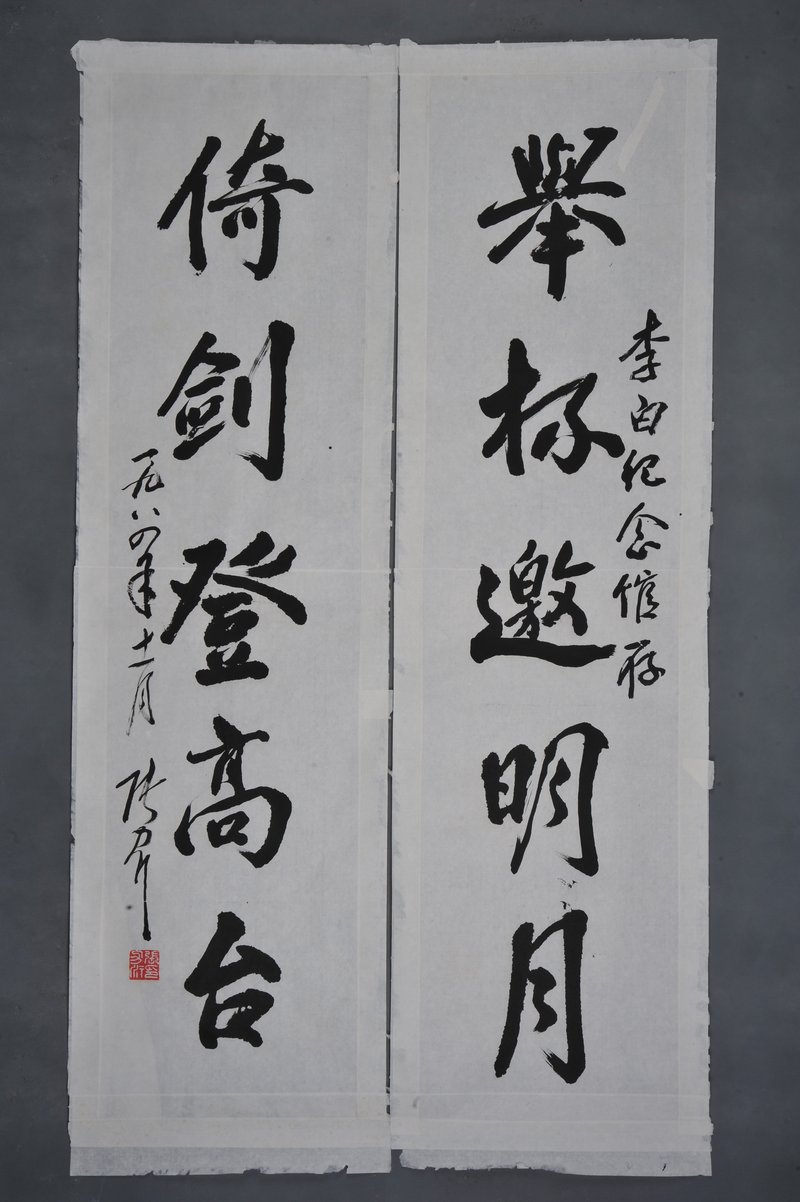 李白纪念馆存
舉杯邀明月
倚劍登高台
一九八四年十一月